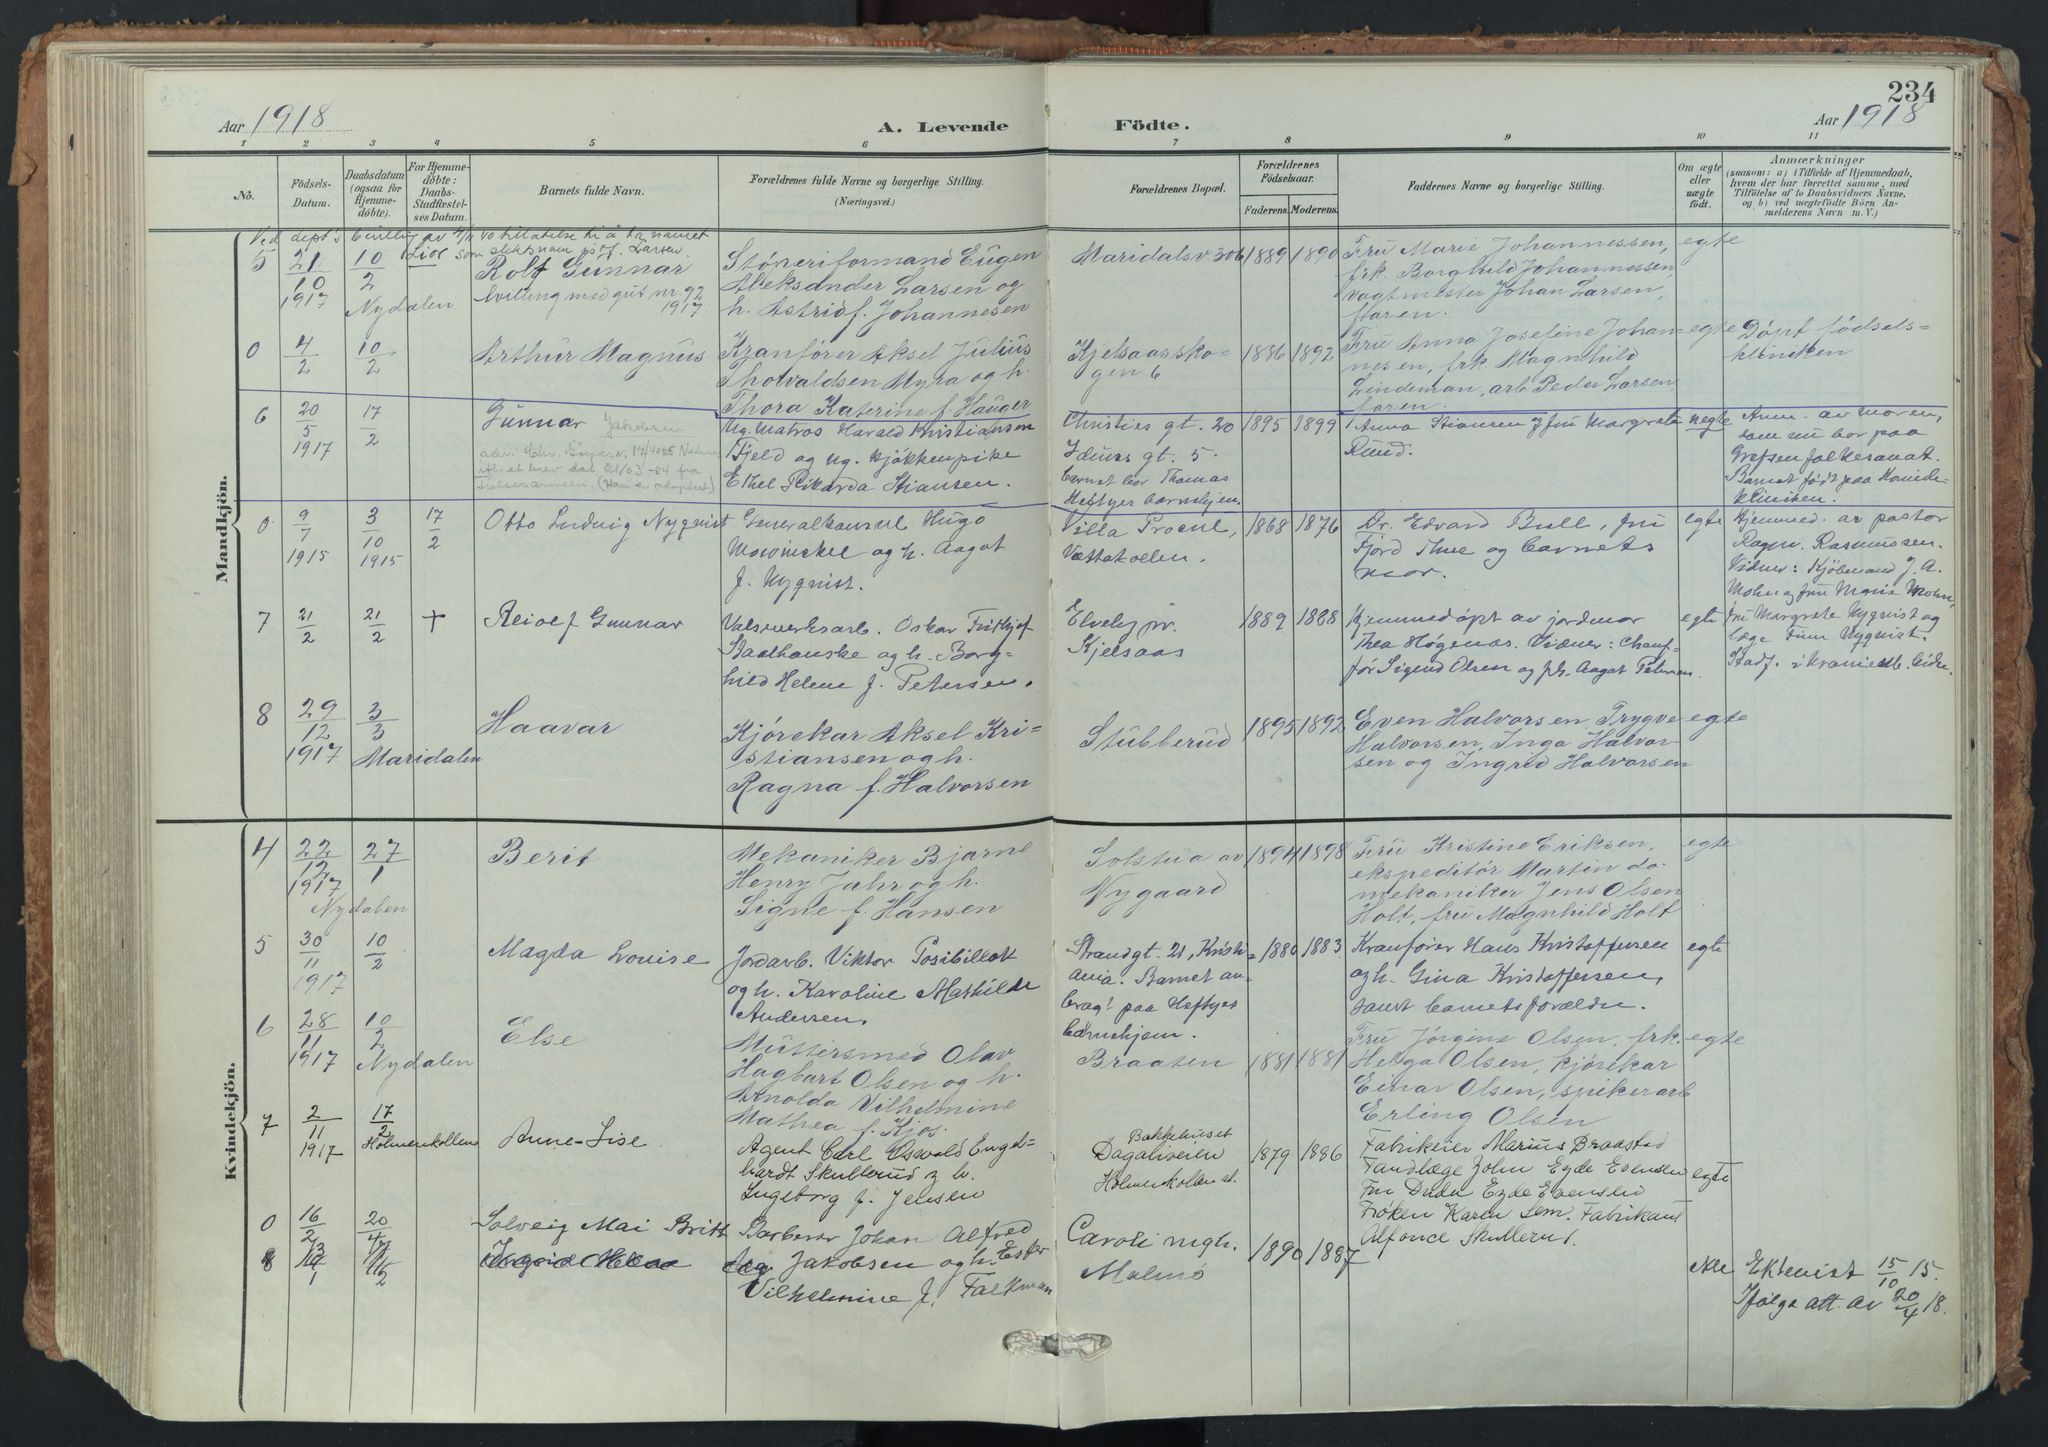 234
Aar 1918
A. Levende
Födte.
Aar 1918
1 2 3 4 5 6 7 8 9 10 11
No.
Födsels-
Datum.
Daabsdatum
(ogsaa for
Hjemme-
döbte).
For Hjemme-
döbte:
Daabs-
Stadfæstel-
ses Datum.
Barnets fulde Navn.
Forældrenes fulde Navne og borgerlige Stilling.
(Næringsvei.)
Forældrenes Bopæl.
Forældrenes
Födselsaar.
Faderens. Moderens.
Faddernes Navne og borgerlige Stilling.
Om ægte
eller
uægte
födt.
Anmærkninger
(saasom: a) i Tilfælde af Hjemmedaab,
hvem der har forrettet samme, med
Tilföielse af to Daabsvidners Navne,
og b) ved uægtefödte Börn An-
melderens Navn m. V.)
Mandkjön.
5
21/10 1917
10/2 Nydalen
Rolf Gunnar
tvilling med gut nr. 92
1917.
Störeriformand Eugen
Aleksander Larsen og
h. Astrid f. Johannesen
Maridalsv. 306
1889 1890
Fru Marie Johannessen,
frk. Borghild Johannessen,
vagtmester Johan Larsen,
faren.
egte
0
4/2
10/2
Arthur Magnus
Kranfører Aksel Julius
Thorvaldsen Myra og h.
Thora Katerine f. Hauger
Kjelsaassko-
gen 6
1886 1892
Fru Anna Josefine Johan-
nesen, frk Magnhild
Lindeman, arb Peder Larsen
faren.
egte
Döpt födsels-
kliniken
6
20/5 1917
17/2
Gunnar Jakobsen
Ug. matros Harald Kristiansen
Fjeld og ug. kjøkkenpike
Ethel Rikarda Stiansen.
Christies gt. 20
gt. 5.
Barnet bor Thomas
Heftyes barnehjem.
1895 1899
Anna Stiansen og fru Margrete
Ruud.
uegte
Anm. av moren,
som nu bor paa
Grefsen folkesanat.
Barnet født paa Kvinde-
kliniken.
0
9/7 1915
3/10 1915
17/2
Otto Ludvig Nyquist
Generalkonsul Hugo
Mowinckel og h. Aagot
f. Nyquist.
Villa
Vettakollen.
1868 1876
Dr. Edvard Bull, fru
Fjord Thue og barnets
mor.
egte
Hjemmed. av pastor
Ragnv. Rasmussen.
Vidner: Kjøbmand J. A.
Mohn og fru Marie Mohn,
fru Margrete Nyquist og
læge Finn Nyquist.
7
21/2
21/2
+
Reiolf Gunnar
Valsverksarb. Oskar Frithjof
Baalhanske og h. Borg-
hild Helene f. Petersen.
Elvehj pr.
Kjelsaas
1889 1888
Hjemmedøpt av jordmor
Thea Høgenæs. Vidner: Chauf-
før Sigurd Olsen og frk. Aagot Petersen.
egte
8
29/12 1917
3/3 Maridalen
Haavar
Kjørekar Aksel Kri-
stiansen og h.
Ragna f. Halvorsen
Stubberud
1895 1892
Even Halvorsen Trygve
Halvorsen, Inga Halvor-
sen og Ingrid Halvorsen
egte
Kvindekjön.
4
22/12 1917
27/1
Nydalen
Berit
Mekaniker Bjarne
Henry Jahr og h.
Signe f. Hansen
Solstua av
Nygaard
1894 1898
Fru Kristine Eriksen,
ekspeditör Martin do.
mekaniker Jens Olsen
Holt, fru Magnhild Holt
egte
5
30/11 1917
10/2
Magda Louise
Jordarb. Viktor Posibillott
og h. Karoline Mathilde
Andersen.
Strandgt. 21, Kristi-
ania. Barnet an-
bragt paa Heftyes
barnehjem.
1880 1883
Kranfører Hans Kristoffersen
og h. Gina Kristoffersen,
samt barnets forældre.
egte
6
28/11 1917
10/2 Nydalen
Else
Muttersmed Olav
Hagbart Olsen og h.
Arnolda Vilhelmine
Mathea f. Kjos.
Braaten
1881 1881
Fru Jørgine Olsen, frk.
Helga Olsen, kjørekar
Einar Olsen, spikerarb
Erling Olsen
egte
7
2/11 1917
17/2 Holmenkollen
Anne-Lise
Agent Carl Oswald Engel-
hardt Skullerud og h.
Ingeborg f. Jensen
Bakkehuset
Dagaliveien
Holmenkollen st.
1879 1886
Fabrikeier Marius Braastad
Tandlæge John Egde Evensen
Fru Dudu Egde Evensen
Frøken Karen Sem. Fabrikant
Alfonce Skullerud.
egte
0
16/2
20/4
Solveig Mai Britt
Barberer Johan Alfred
Jakobsen og h. Ester
Vilhelmine f. Falkman
Caroli mgh.
Malmö
1890 1887
8
Ektevist 15/10 15.
Ifølge att. av 20/4 18.